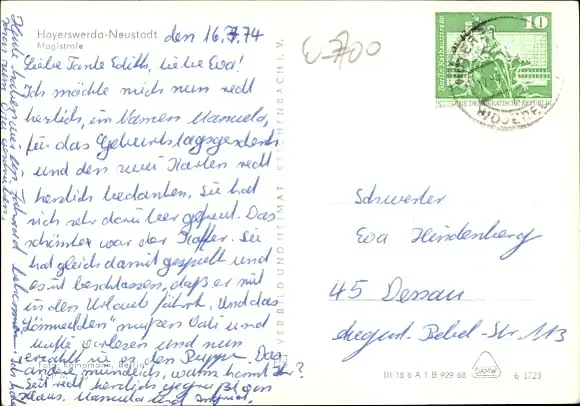 Hoyerswerda-Neustadt
Magistrale
den 16.7.74
Liebe Tante Edith, liebe Eva!
Ich möchte mich nun recht
herzlich, im Namen Manuela,
für das Geburtstagsgeschenk
und den zwei Karten recht
herzlich bedanken. Sie hat
sich sehr darüber gefreut. Das
schönste war der Koffer. Sie
hat gleich damit gespielt und
es ist beschlossen, daß er mit
in den Urlaub fährt. Und das
mußte Vati und
vorlesen und nun
erzählt sie es den Puppen. Das
andere mündlich, wann kommt Ihr?
Seit recht herzlich gegrüßt von
Klaus, Manuela und
VEB BILD UND HEIMAT REICHENBACH I. V.
Foto: Kampmann, Berlin
10
Berlin · Rathausstraße
DEUTSCHE DEMOKRATISCHE REPUBLIK
Schwester
Eva Hindenberg
45 Dessau
August-Bebel-Str. 113
III 18 6 A 1 B 929 68
DAMW
6 1723